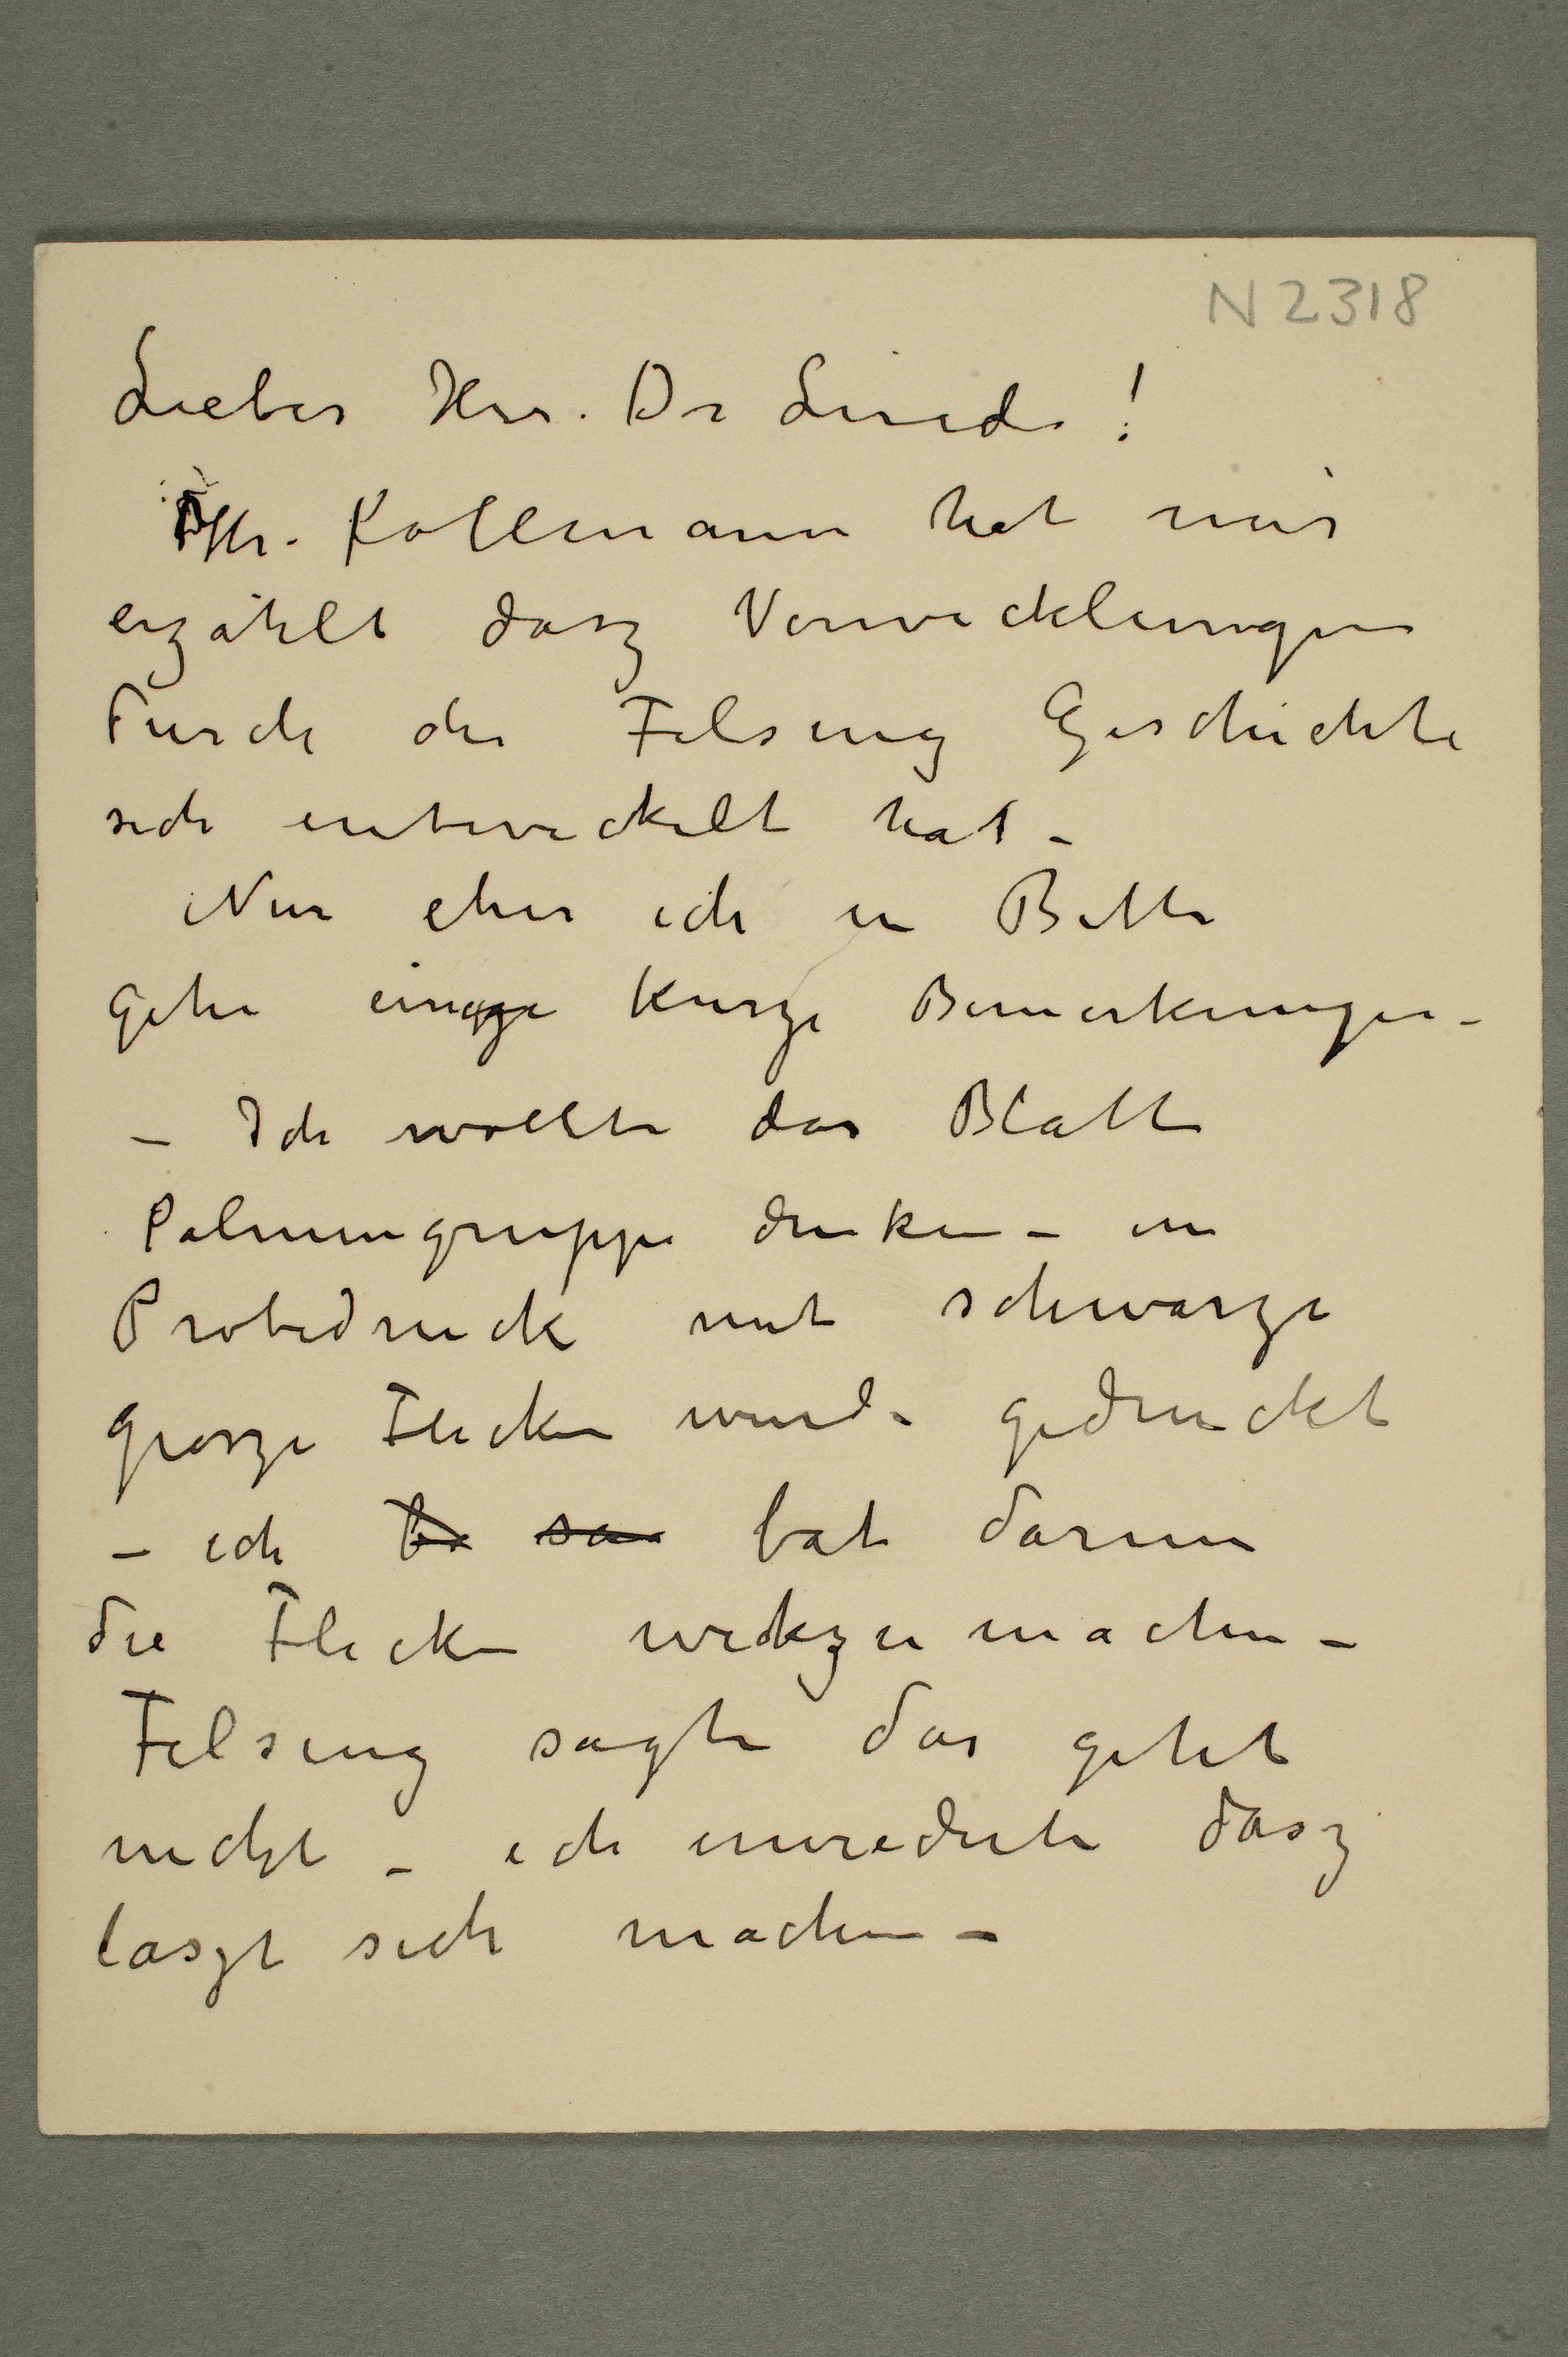 N 2318
Lieber Herr. Dr Linde!
Hr. Kollmann hat mir
erzählt dasz Verwicklungen
durch die Felsing Geschichte
sich entwickelt hat –
Nur eher ich in Bette
gehe einige kurze Bemerkungen –
– Ich wollte das Blatt
Palmengruppe druken – ein
Probedruck mit schwarze
grosze Flecken wurde gedruckt
– ich bat darum
die Flecken wekzumachen –
Felsing sagte das geht
nicht – ich einredete dasz
laszt sich machen –